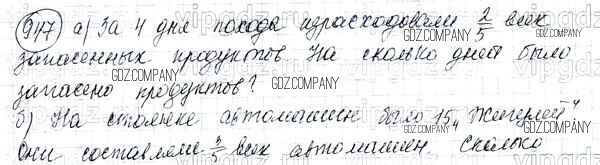 947 а) За 4 дня похода израсходовали 2/5 всех
запасенных продуктов На сколько дней было
запасено продуктов?
б) На стоянке автомашин было 15 "Жигулей"
они составляли 3/5 всех автомашин. Сколько
GDZ.COMPANY GDZ.COMPANY GDZ.COMPANY
GDZ.COMPANY GDZ.COMPANY